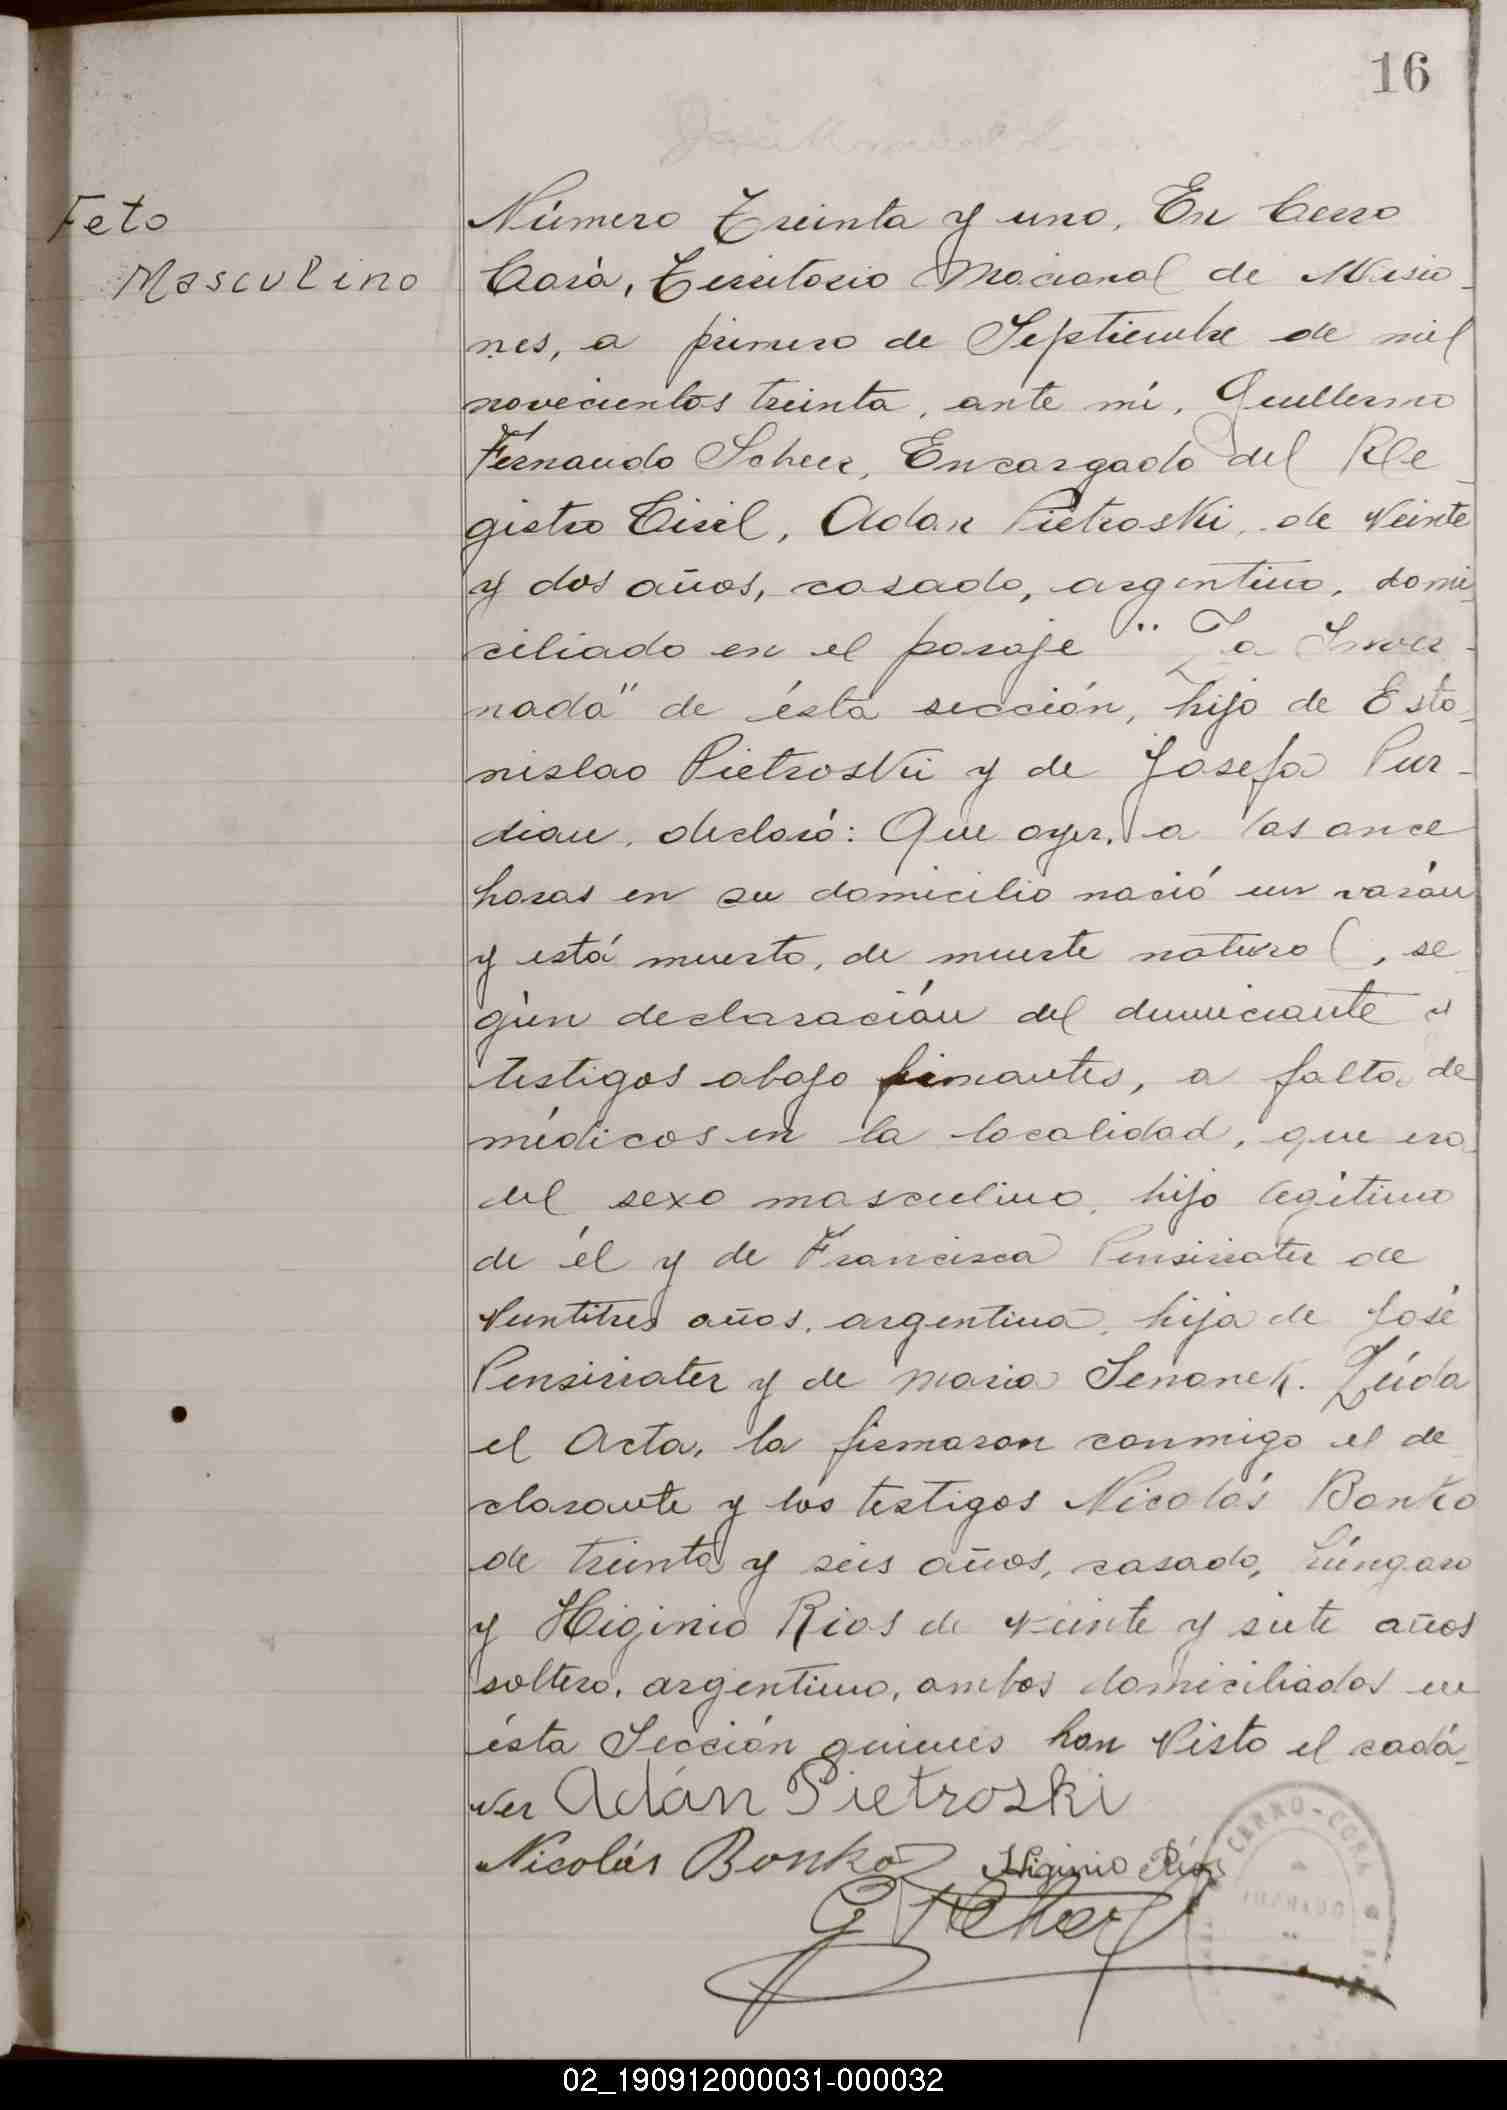 16
Feto
Masculino
Número Treinta y uno. En Cerro
Corá, Territorio Nacional de Misio_
nes, a primero de Septiembre de mil
novecientos treinta, ante mí, Guillermo
Fernando Scheer, Encargado del Re_
gistro Civil, Adan Pietroski, de veinte
y dos años, casado, argentino, domi_
ciliado en el paraje "La Inver_
nada" de ésta sección, hijo de Esta_
nislao Pietroski y de Josefa Pur_
dian, declaró: Que ayer, a las once
horas en su domicilio nació un varón
y está muerto, de muerte natural, se_
gún declaración del denunciante y
testigos abajo firmantes, a falta de
médicos en la localidad, que era
del sexo masculino, hijo legítimo
de él y de Francisca de
veintitres años, argentina, hija de José
y de Maria Senanek. Leída
el Acta, la firmaron conmigo el de_
clarante y los testigos Nicolás Bonko
de treinta y seis años, casado, húngaro
y Higinio Rios de veinte y siete años
soltero, argentino, ambos domiciliados en
ésta Sección quienes han visto el cadá_
ver Adán Pietroski
Nicolás Bonko Higinio Ríos
G F Scheer
CERRO-CORÁ
02_190912000031-000032